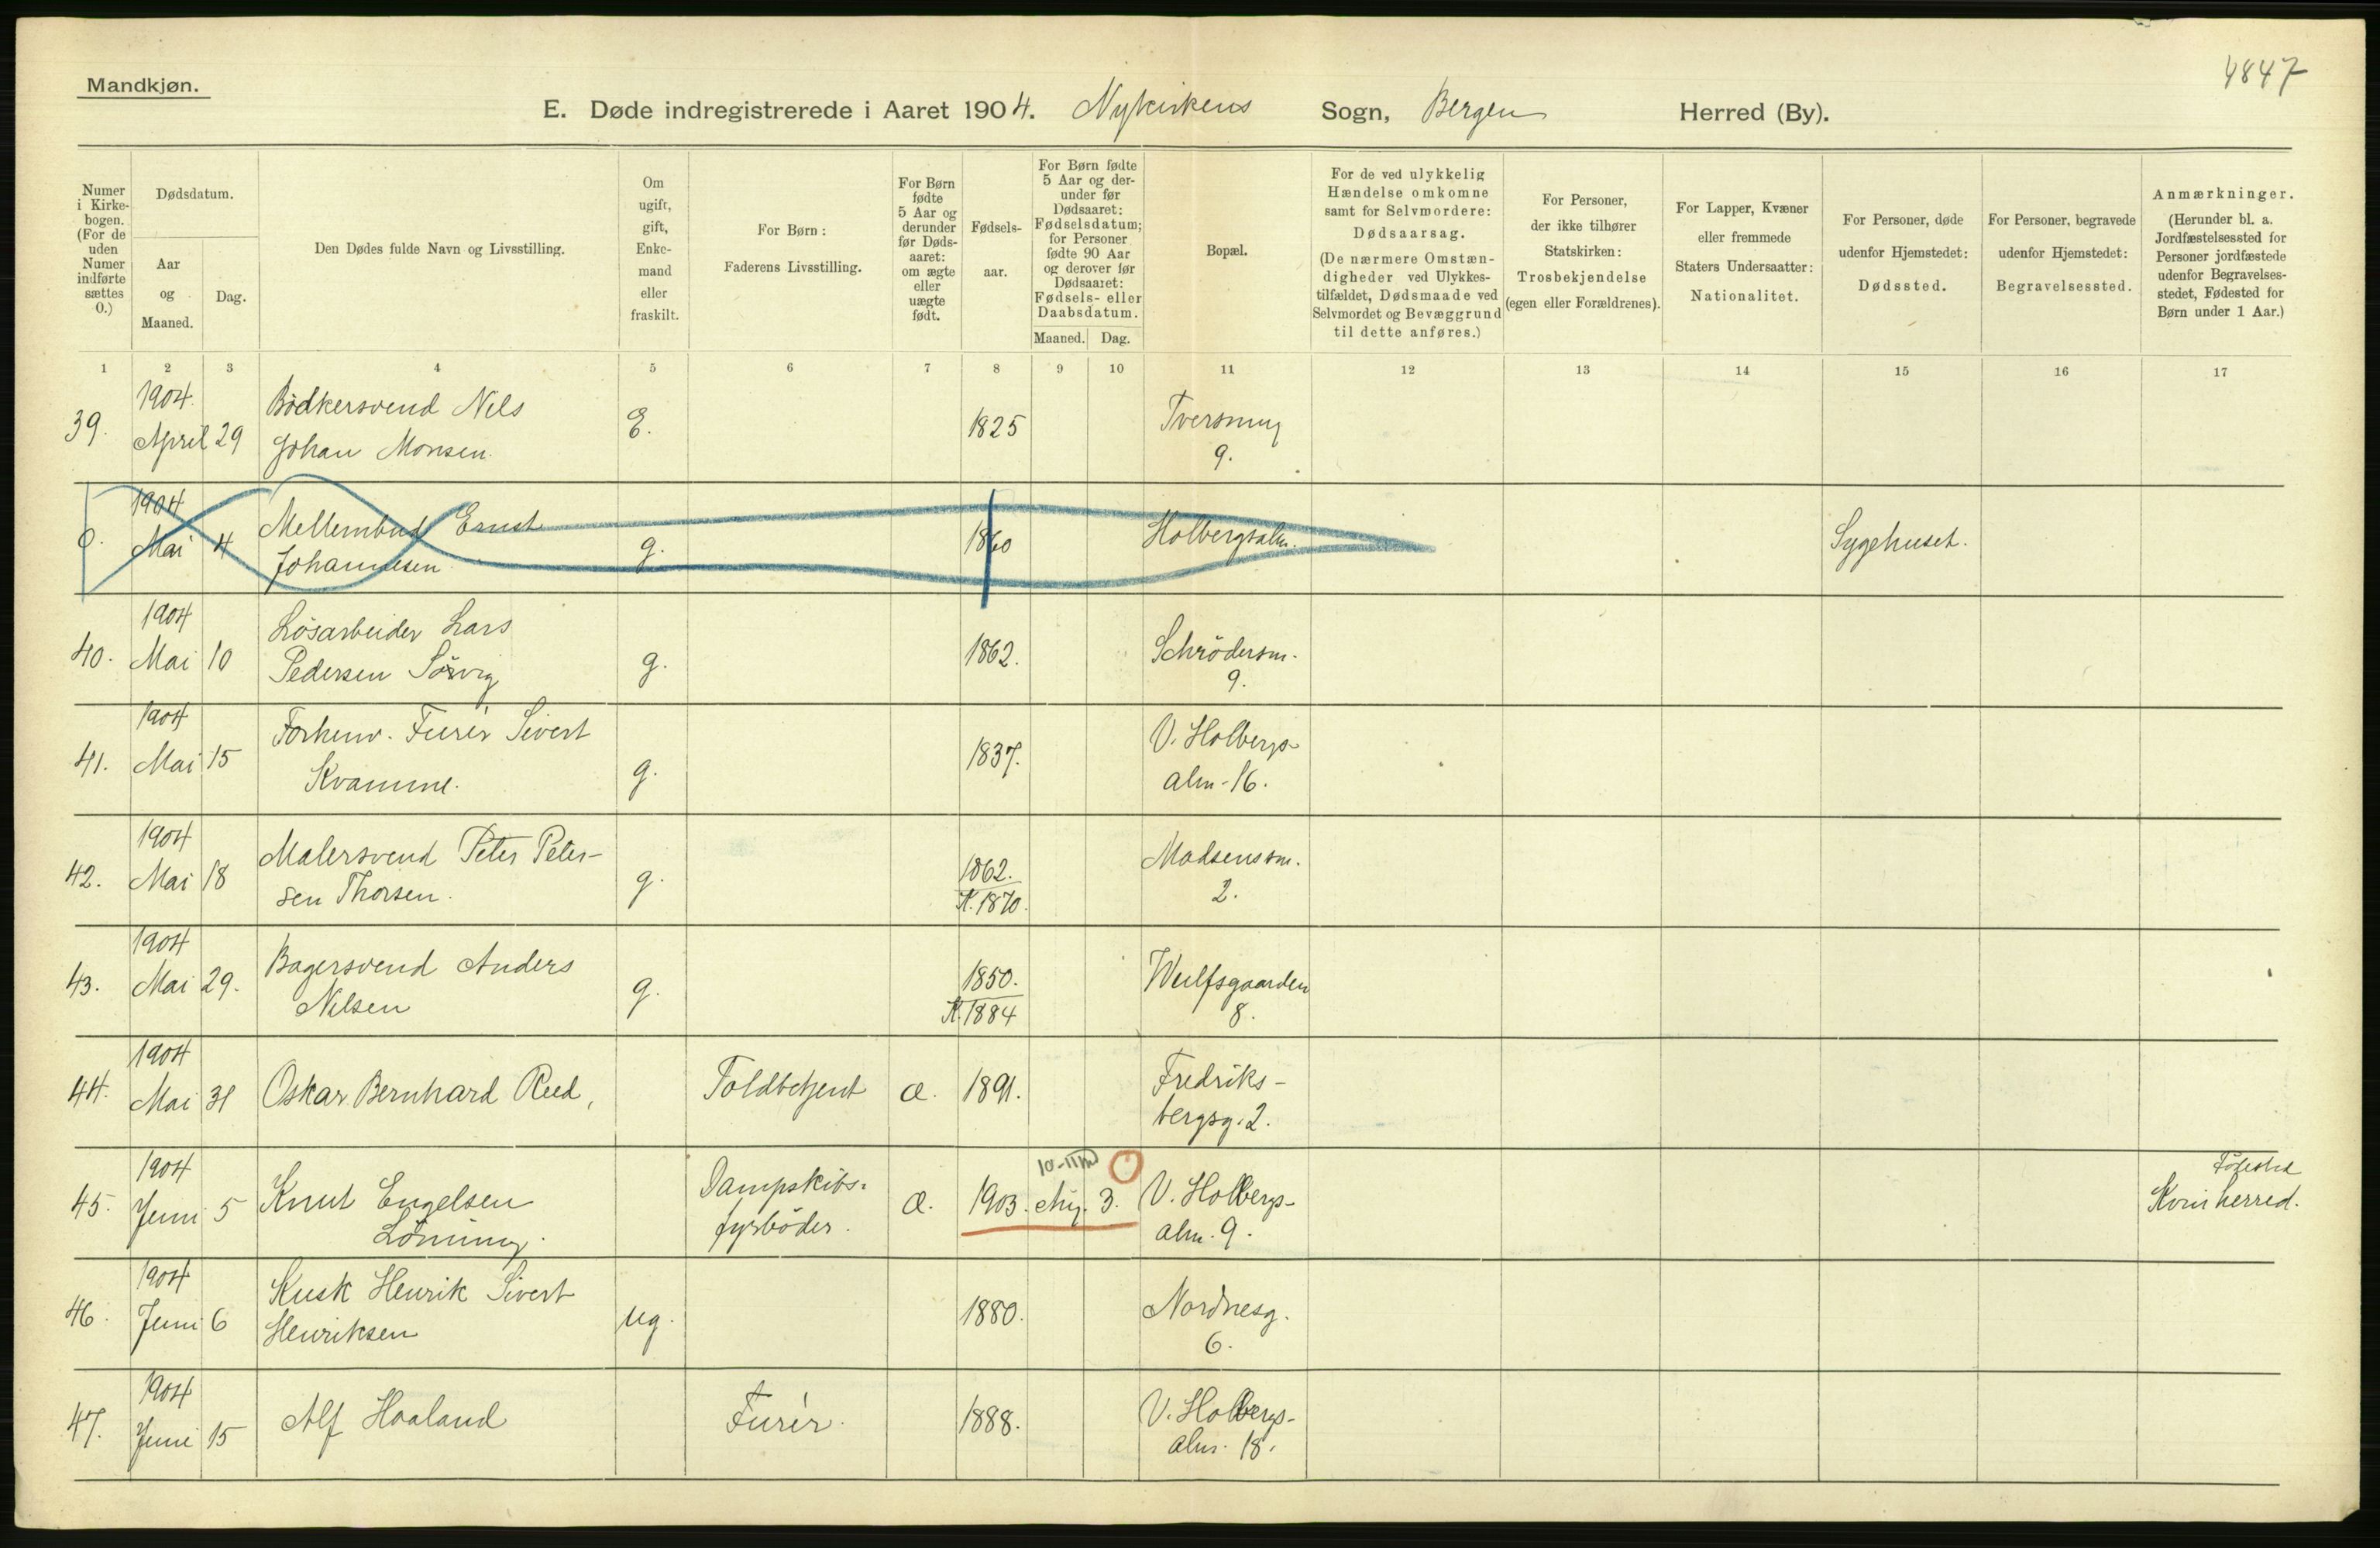 Mandkjøn.
4847
E. Døde indregistrerede i Aaret 1904. Nykirkens Sogn, Bergen Herred (By).
Numer
i Kirke-
bogen.
(For de
uden
Numer
indførte
sættes
0.)
Dødsdatum.
Aar
og
Maaned.
Dag.
Den Dødes fulde Navn og Livsstilling.
Om
ugift,
gift,
Enke-
mand
eller
fraskilt.
For Børn :
Faderens Livsstilling.
For Børn
fødte
5 Aar og
derunder
før Døds-
aaret:
om ægte
eller
uægte
født.
Fødsels-
aar.
For Børn fødte
5 Aar og der-
under før
Dødsaaret:
Fødselsdatum;
for Personer
fødte 90 Aar
og derover før
Dødsaaret:
Fødsels- eller
Daabsdatum.
Maaned. Dag.
Bopæl.
For de ved ulykkelig
Hændelse omkomne
samt for Selvmordere:
Dødsaarsag.
(De nærmere Omstæn-
digheder ved Ulykkes-
tilfældet, Dødsmaade ved
Selvmordet og Bevæggrund
til dette anføres.)
For Personer,
der ikke tilhører
Statskirken:
Trosbekjendelse
(egen eller Forældrenes).
For Lapper, Kvæner
eller fremmede
Staters Undersaatter:
Nationalitet.
For Personer, døde
udenfor Hjemstedet:
Dødssted.
For Personer, begravede
udenfor Hjemstedet:
Begravelsessted.
Anmærkninger.
(Herunder bl. a.
Jordfæstelsessted for
Personer jordfæstede
udenfor Begravelses-
stedet, Fødested for
Børn under 1 Aar.)
1 2 3 4 5 6 7 8 9 10 11 12 13 14 15 16 17
1904.
39. April 29 Bödkersvend Nils
Johan Monsen. E. 1825 Tversmug
9.
1904
0. Mai 4 Mellembud Ernst
Johannesen. g. 1860 Holbergsalm. Sygehuset.
1904
40. Mai 10 Lösarbeider Lars
Pedersen Sörvig g. 1862. Schrödersm.
9.
1904
41. Mai 15 Forhenv. Furér Sivert
Kvamme. g. 1837. V. Holbergs-
alm. 16.
1904
42. Mai 18 Malersvend Peter Peter-
sen Thorsen. g. 1862.
K. 1870. Madsenssm.
2.
1904
43. Mai 29. Bagersvend Anders
Nilsen g. 1850.
K. 1884 Wulfsgaarden
8.
1904
44. Mai 31 Oskar Bernhard Reed, Toldbetjent æ. 1891. Fredriks-
bergsg. 2.
1904
45. Juni 5 Knut Engelsen
Lönning. Dampskibs-
fyrböder. æ. 1903. Aug. 3. 10-11 m V. Holbergs-
alm. 9. Födested
Kvinherred.
1904
46. Juni 6 Kusk Henrik Sivert
Henriksen ug. 1880. Nordnesg.
6.
1904
47. Juni 15 Alf Haaland Furér. 1888. V. Holbergs-
alm. 18.